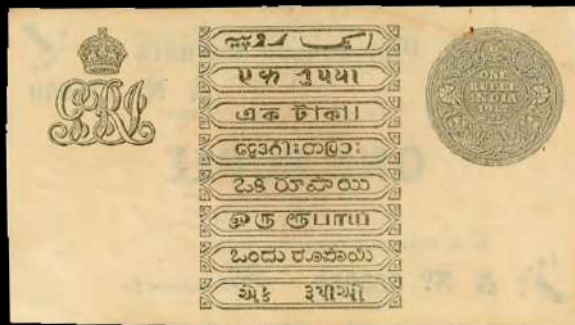 GRI
ایک روپیہ
𑂉𑂍 𑂩𑂳𑂣𑂨𑂰
এক টাকা।
ఒక రూపాయి
ஒரு ரூபாய்
ಒಂದು ರೂಪಾಯಿ
એક રૂપીઓ
ONE
RUPEE
INDIA